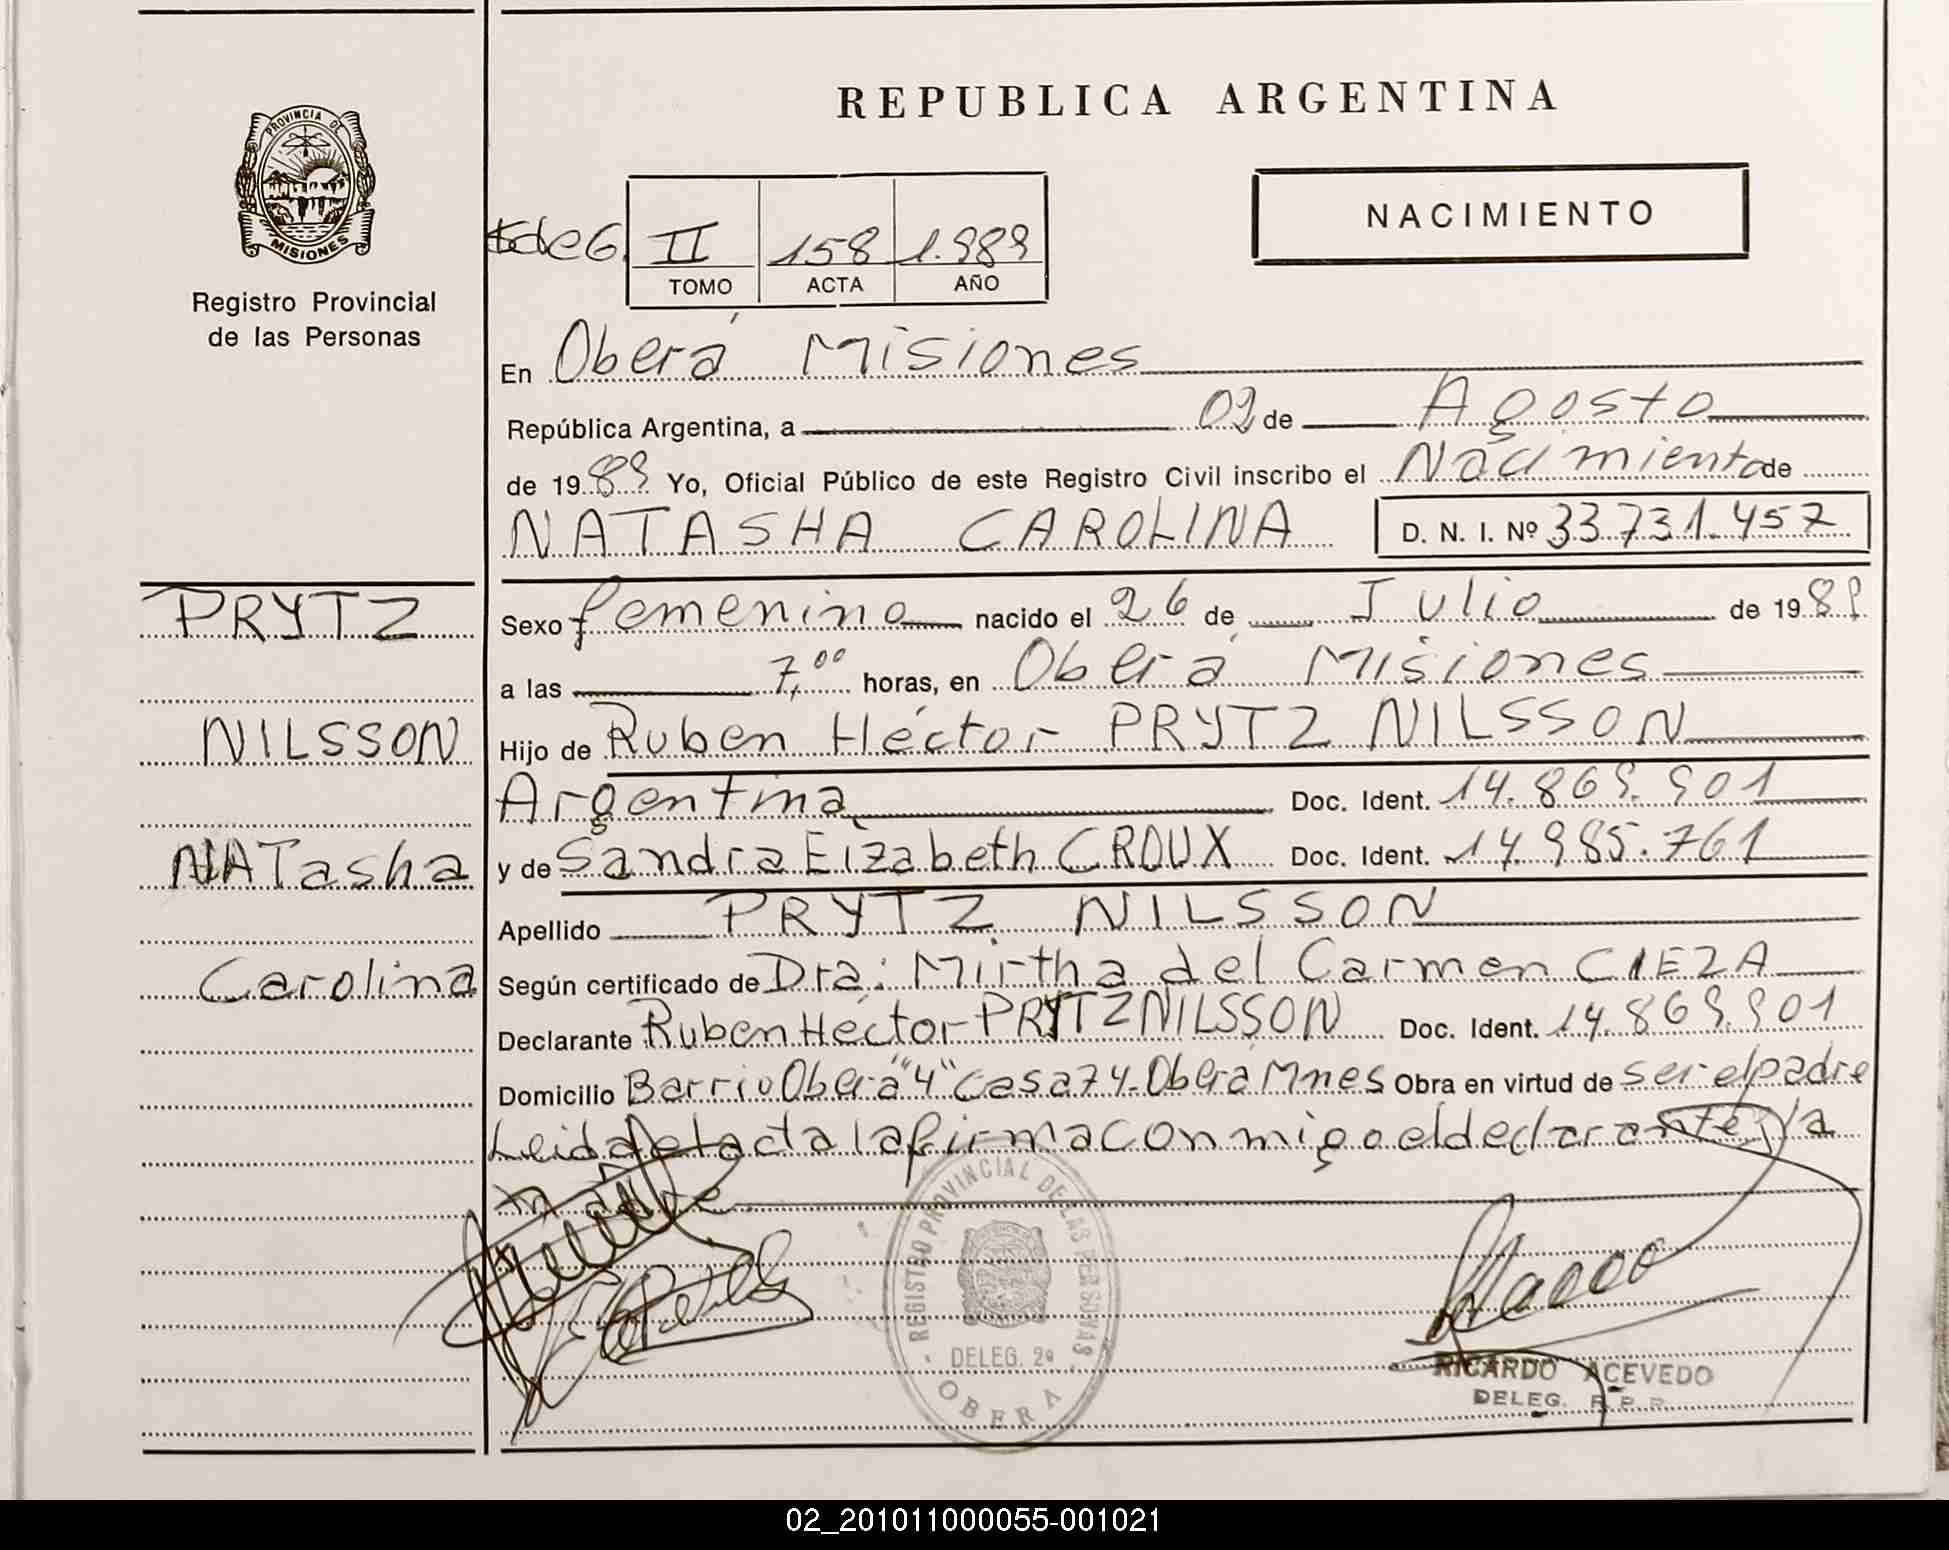 REPUBLICA ARGENTINA
PROVINCIA DE
MISIONES
Registro Provincial
de las Personas
NACIMIENTO
II 158 1.989
TOMO ACTA AÑO
En Oberá Misiones
República Argentina, a 02 de Agosto
de 1989 Yo, Oficial Público de este Registro Civil inscribo el Nacimiento de
NATASHA CAROLINA D. N. I. Nº 33.731.457
PRYTZ
NILSSON
NATasha
Carolina
Sexo femenino nacido el 26 de Julio de 1989
a las 7,00 horas, en Oberá Misiones
Hijo de Ruben Héctor PRYTZ NILSSON
Argentina Doc. Ident. 14.869.901
y de Sandra Elizabeth CROUX Doc. Ident. 14.985.761
Apellido PRYTZ NILSSON
Según certificado de Dra: Mirtha del Carmen CIEZA
Declarante Ruben Héctor PRYTZ NILSSON Doc. Ident. 14.869.901
Domicilio Barrio Oberá "4" Casa 74-Oberá Mnes Obra en virtud de ser el padre
Leida el acta la firma conmigo el declarante y la
madre
REGISTRO PROVINCIAL DE LAS PERSONAS
DELEG. 2ª
OBERA
RICARDO ACEVEDO
DELEG. R.P.P.
02_201011000055-001021